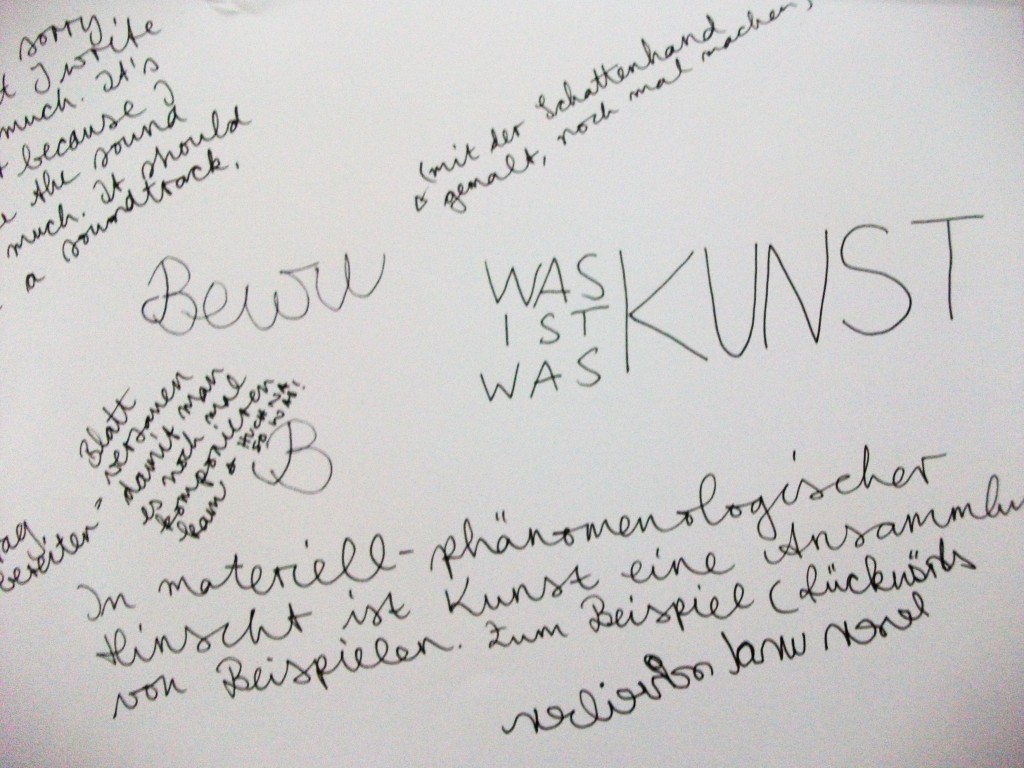 sorry,
t I write
much. It's
because I
the sound
much. It should
a soundtrack.
(mit der Schattenhand
gemalt, noch mal machen)
Bewu
WAS
IST
WAS
KUNST
Blatt
versauen
damit man
es noch mal
komponieren
kann &
HUCH NA
SO WAS!
B
ag
bereiten =
In materiell-phänomenologischer
Hinscht ist Kunst eine Ansammlun
von Beispielen. Zum Beispiel (Rückwärts